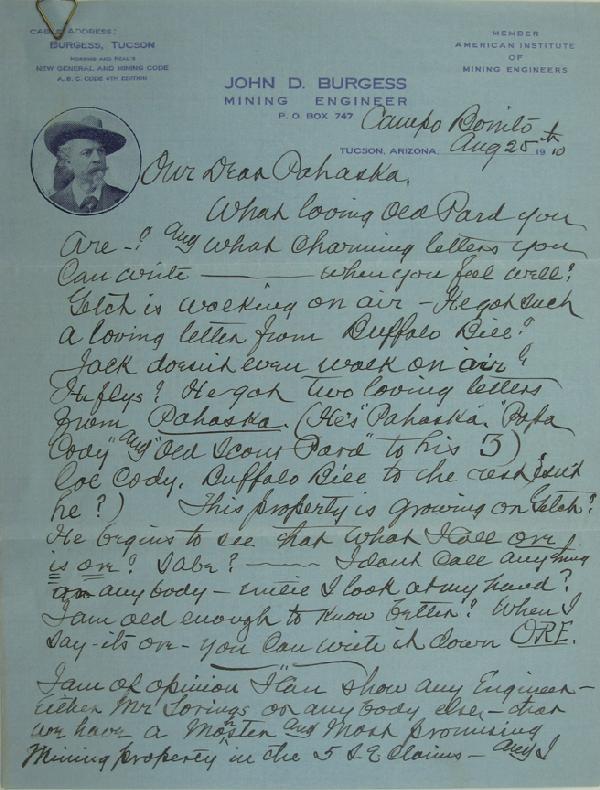 CABLE ADDRESS:
BURGESS, TUCSON
MOREING AND NEAL'S
NEW GENERAL AND MINING CODE
A.B.C. CODE 4TH EDITION
MEMBER
AMERICAN INSTITUTE
OF
MINING ENGINEERS
JOHN D. BURGESS
MINING ENGINEER
P. O. BOX 747
Campo Bonito
TUCSON, ARIZONA, Aug 25th 1910
Our Dear Pahaska,
What loving Old Pard you
Are -? and what charming letters you
Can write ——— when you feel well?
Getch is walking on air - He got such
a loving letter from Buffalo Bill?
Jack doesn't even walk on air?
He flys? He got two loving letters
from Pahaska. (He's "Pahaska" "Papa
Cody" and "Old Scout Pard" to his 3)
Col Cody, Buffalo Bill to the rest isn't
he?) This property is growing on Getch?
He begins to see that what I call ore
is ore? Sabe? —— I dont call anything
anybody - until I look at my hand?
I am old enough to know better? When I
say - its ore - you can write it down ORE.
I am of opinion I can show any Engineer -
Either Mr Lorings or any body else, - that
we have a Most and Most promising
Mining property in the 5 claims - and I